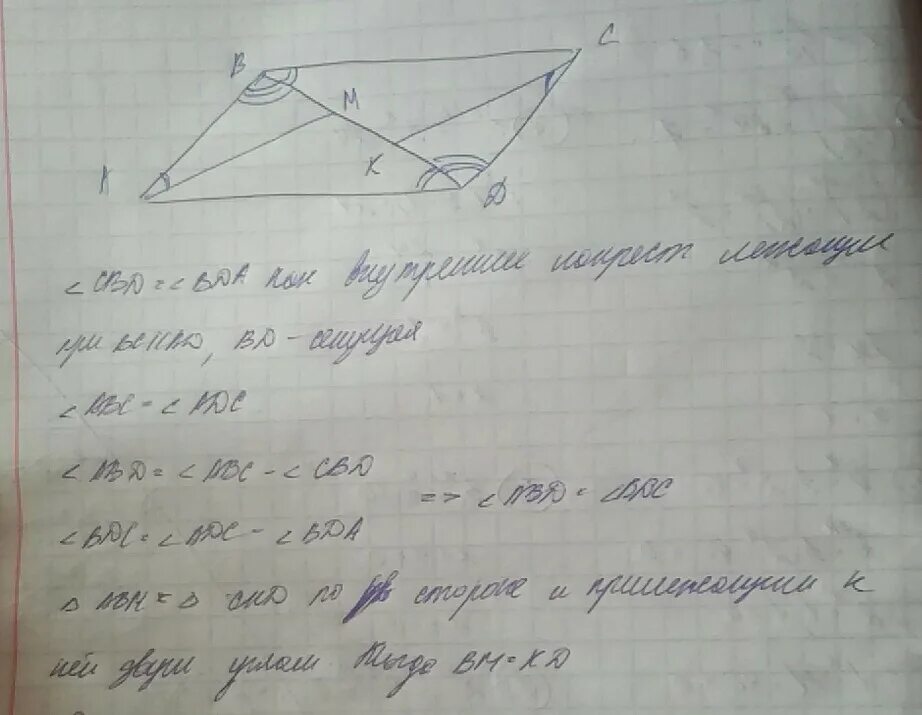 B
C
M
K
A
D
∠CBD = ∠BDA как внутренние накрест лежащие
при BC||AD, BD - секущая
∠ABC = ∠ADC
∠ABD = ∠ABC - ∠CBD
=> ∠ABD = ∠BDC
∠BDC = ∠ADC - ∠BDA
△ABM = △CKD по стороне и прилежащим к
ней двум углам Тогда BM = KD